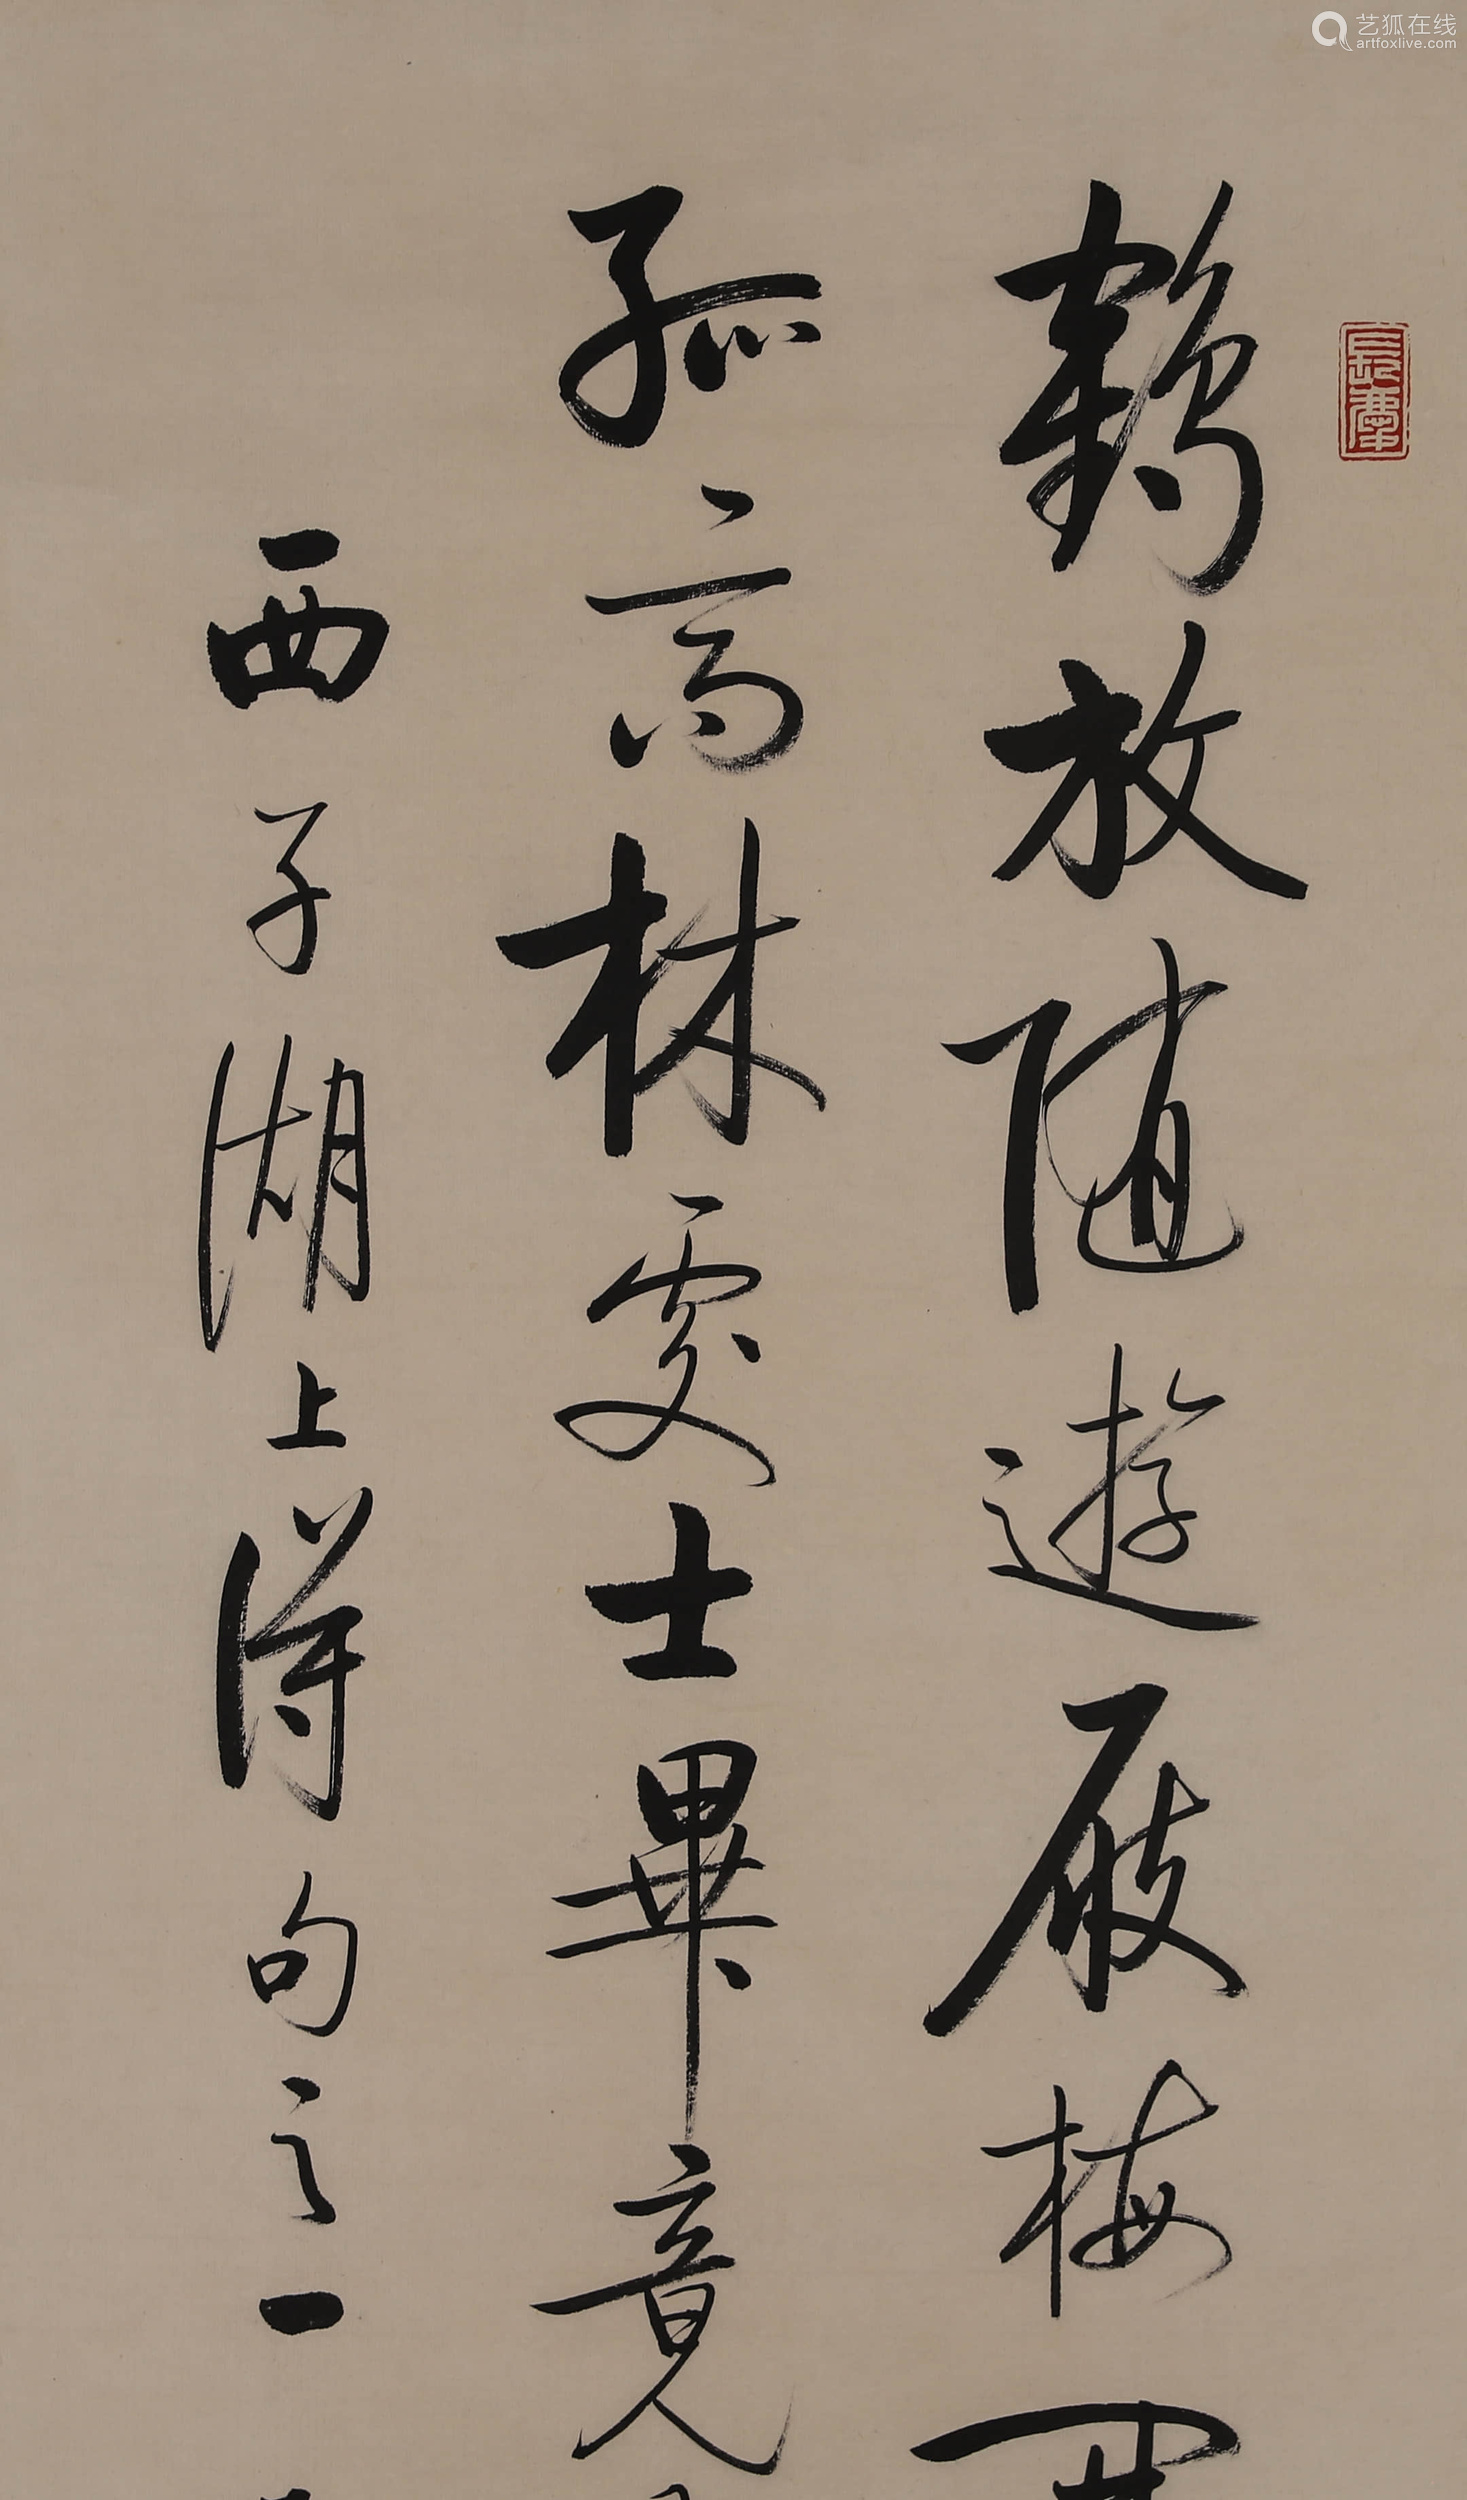 鶴放随遊屐梅
孤高林處士畢竟
西子湖上得句之一
艺狐在线
artfoxlive.com